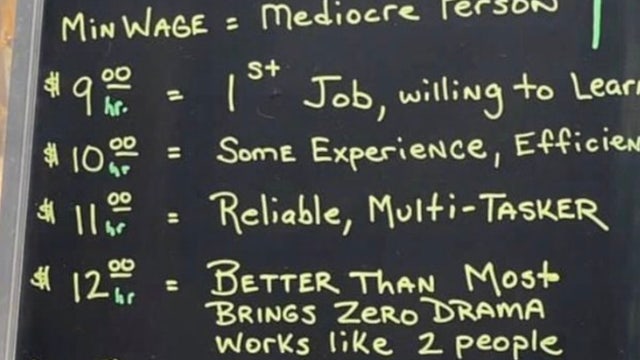 Min WAGE = Mediocre Person
$ 9 00 hr. = 1st Job, willing to Lear
$ 10 00 hr = Some Experience, Efficien
$ 11 00 hr = Reliable, Multi-TASKER
$ 12 00 hr = BETTER THAN Most
BRINGS ZERO DRAMA
Works like 2 people